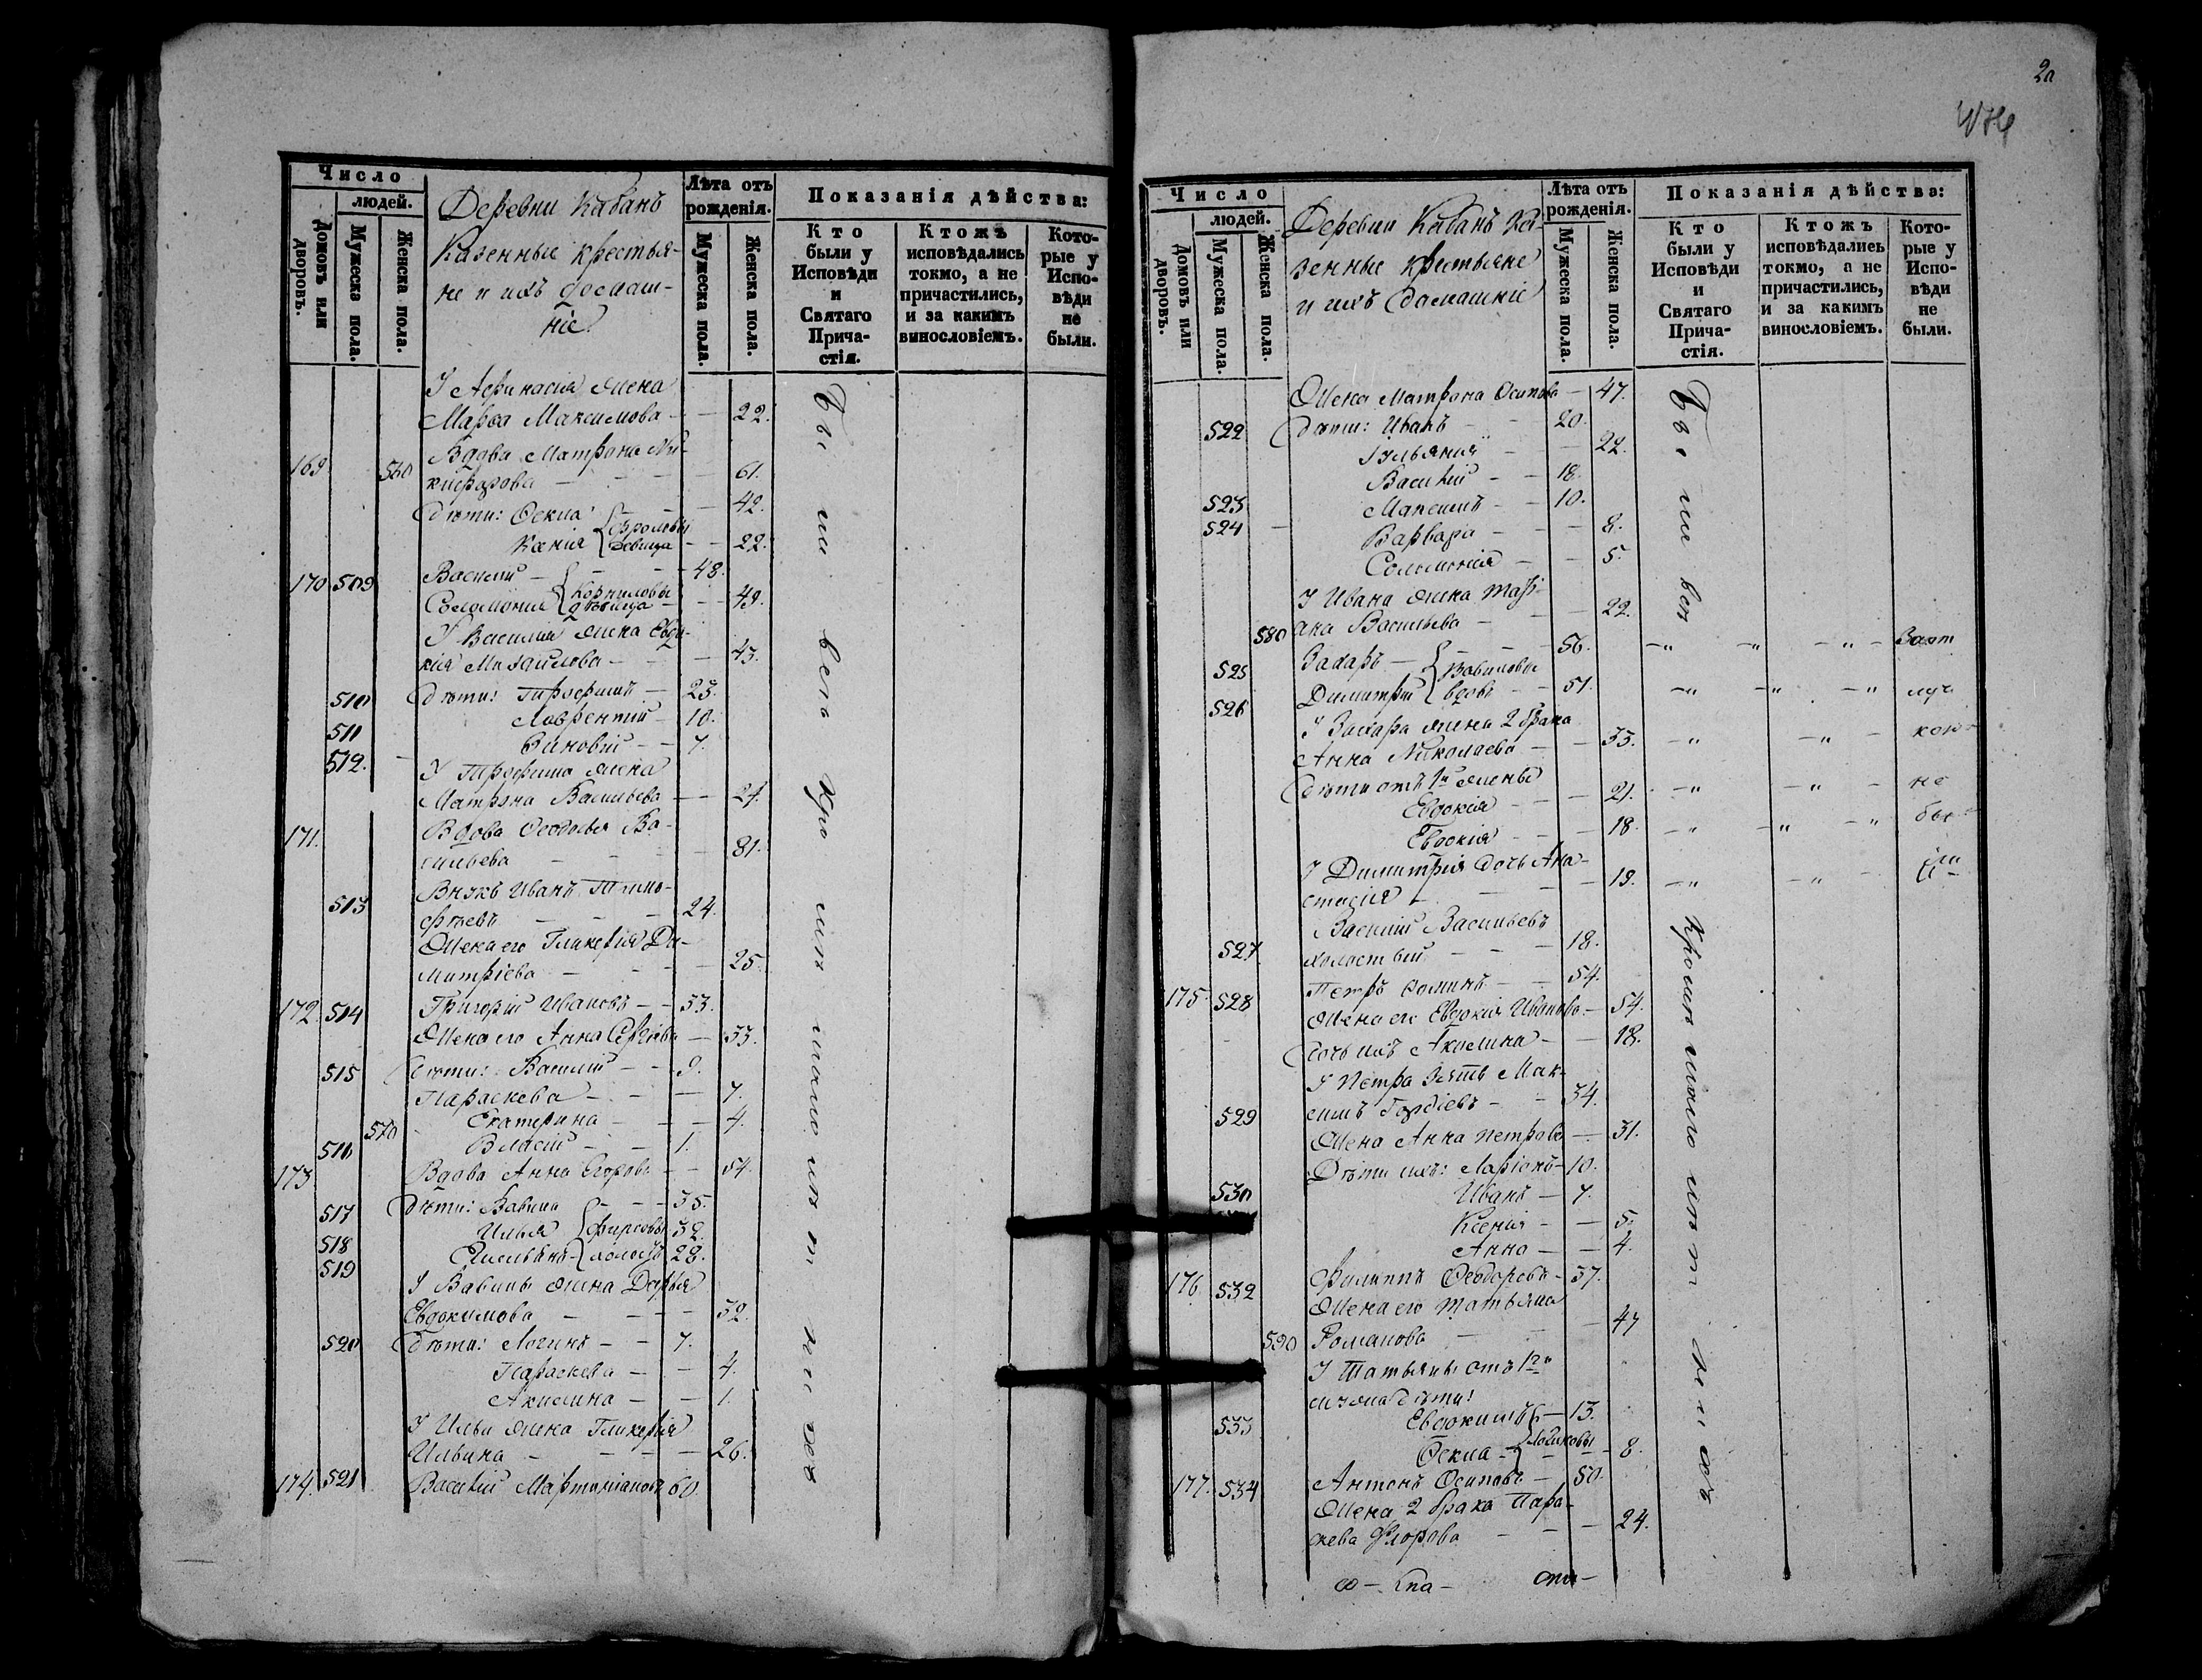 Число
людей.
Домовъ или дворовъ.
Мужеска пола.
Женска пола.
Деревни Кабанъ
Казенные крестья-
не и ихъ домаш-
ніе
Лѣта отъ
рожденія.
Мужеска пола.
Женска пола.
Показанія дѣйства:
Кто
были у
Исповѣди
и
Святаго
Прича-
стія.
Ктожъ
исповѣдались
токмо, а не
причастились,
и за какимъ
винословіемъ.
Кото-
рые у
Испо-
вѣди
не
были.
У Афанасія жена
Марѳа Максимова - - 22.
Вдова Матрона Ни-
169 560 кифорова - - 61.
Дѣти: Ѳекла - - 42.
Ксенія девица - - 22.
170 509 Василій - - 48.
Соломонія Корниловы девица - - 49.
У Василія жена Евдо-
кія Михайлова - - 43.
510 Дѣти: Трофимъ - 23.
511 Лаврентій - 10.
512. Зиновій - - 7.
У Трофима жена
Матрона Васильева - - 24.
171. Вдова Ѳеодосья Ва-
сильева - - 81.
513 Внукъ Иванъ Тимо-
фѣевъ - - 24.
Жена его Гликерія Ди-
митріева - - 25.
172. 514 Григорій Ивановъ - - 33.
Жена его Анна Сергіева - 33.
515 Дѣти: Василій - - 9.
Параскева - - 7.
570 Екатерина - - 4.
516 Власій - - 1.
173 Вдова Анна Егорова - - 54.
517 Дѣти: Вавила - - 35.
518 Илья Фирсовы 32.
519 Емельянъ холосты 28.
У Вавилы жена Дарья
Евдокимова - - 32.
520 Дѣти: Логинъ - - 7.
Параскева - - 4.
Акилина - - 1.
У Ильи жена Гликерія
Ильина - - 26.
174. 521 Василій Мартиніановъ 60.
Бы ли всѣ кро мѣ мало лѣ т ни хъ
20
Число
людей.
Домовъ или дворовъ.
Мужеска пола.
Женска пола.
Деревни Кабанъ Ка-
зенные крестьяне
и ихъ домашніе
Лѣта отъ
рожденія.
Мужеска пола.
Женска пола.
Показанія дѣйства:
Кто
были у
Исповѣди
и
Святаго
Прича-
стія.
Ктожъ
исповѣдались
токмо, а не
причастились,
и за какимъ
винословіемъ.
Кото-
рые у
Испо-
вѣди
не
были.
Жена Матрона Осипова - 47.
522 Дѣти: Иванъ - - 20.
Іульянія - - 22.
Василій - - 18.
523 Максимъ - - 10.
524 Варвара - - 8.
Соломонія - - 5.
У Ивана жена Тать-
580 яна Васильева - - 22.
525 Захаръ - - 56.
526 Димитрій Вавиловы вдовъ - - 51.
У Захара жена 2 брака
Анна Николаева - - 33.
Дѣти отъ 1й жены
Евдокія - - 21.
Евдокія - - 18.
У Димитрія дочь Ана-
стасія - - 19.
Василій Васильевъ
527 холостый - - 18.
175. 528 Петръ Ѳоминъ - - 54.
Жена его Евдокія Иванова - 54.
Дочь ихъ Акилина - - 18.
У Петра зять Мак-
529 симъ Гордіевъ - - 34.
Жена Анна Петрова - 31.
Дѣти ихъ: Ларіонъ - 10.
530 Иванъ - 7.
Ксенія - - 5.
Анна - - 4.
176. 532 Филиппъ Ѳеодоровъ - 37.
Жена его Татьяна
590 Романова - - 47
У Татьяны отъ 1го
мужа дѣти:
533 Евдокимъ - 13.
Ѳекла - - 8.
177. 534 Антонъ Осиповъ - 50.
Жена 2 брака Пара-
скева Флорова - - 24.
Бы ли всѣ
Кромѣ мало лѣт них ъ